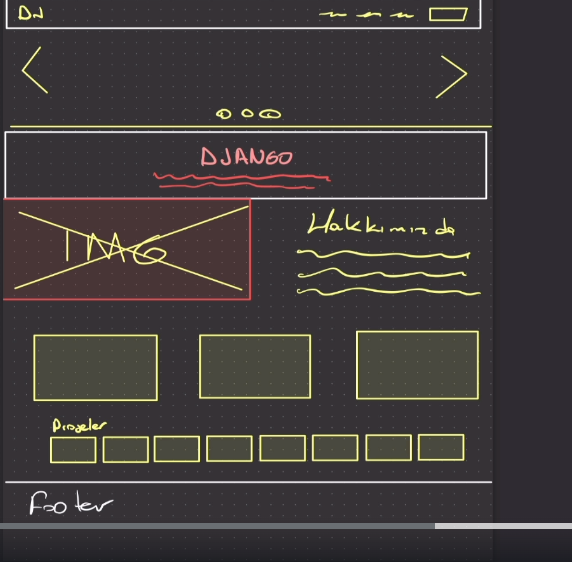 DN
DJANGO
IMG
Hakkımızda
Projeler
Footer